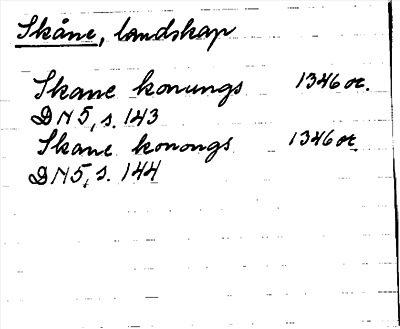 Skåne, landskap
Skane konungs 1346 or.
DN 5, s. 143
Skane konongs 1346 or.
DN 5, s. 144